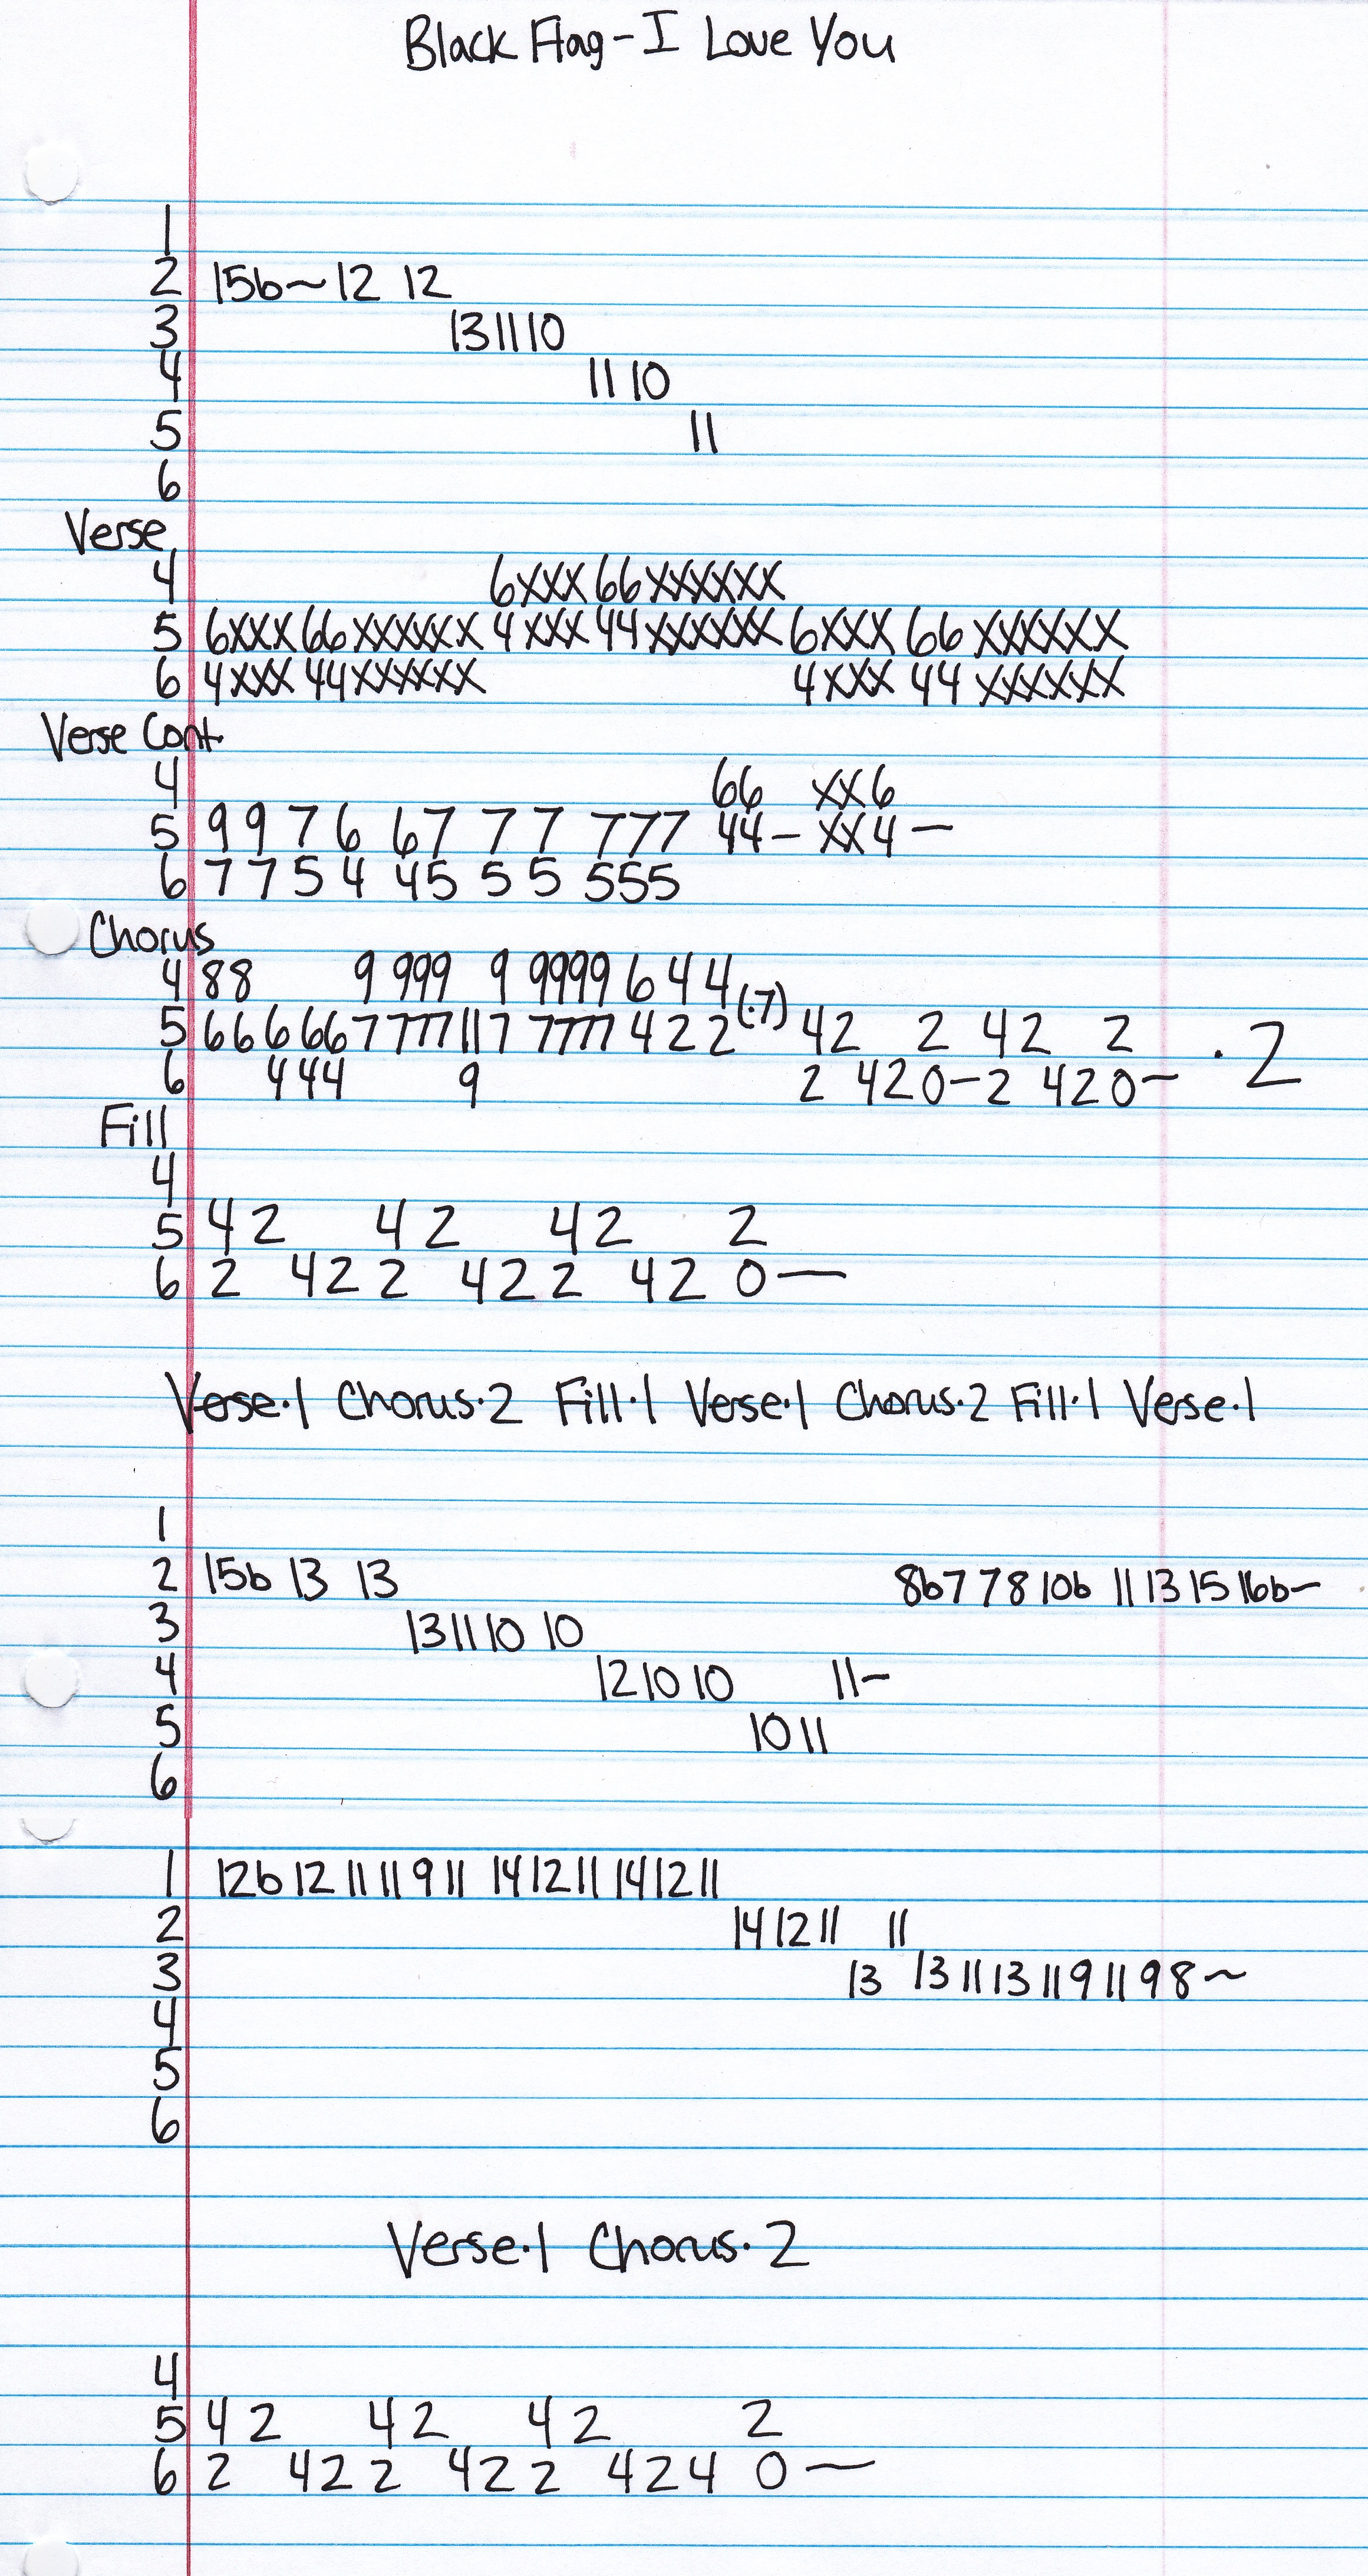 Black Flag - I Love You
1
2 15b~ 12 12
3 13 11 10
4 11 10
5 11
6
Verse
4 6xxx 66 xxxxxx
5 6xxx 66 xxxxxx 4xxx 44 xxxxxx 6xxx 66 xxxxxx
6 4xxx 44 xxxxxx 4xxx 44 xxxxxx
Verse Cont.
4 66 xx6
5 9 9 7 6 67 7 7 777 44- xx4 -
6 7 7 5 4 45 5 5 555
Chorus
4 88 9 999 9 9999 6 4 4
5 66 6 66 7 777 11 7 7777 4 2 2 (·7) 42 2 42 2 · 2
6 444 9 2 420-2 420-
Fill
4
5 42 42 42 2
6 2 422 422 42 0—
Verse·1 Chorus·2 Fill·1 Verse·1 Chorus·2 Fill·1 Verse·1
1
2 15b 13 13 8b 7 7 8 10b 11 13 15 16b~
3 13 11 10 10
4 12 10 10 11~
5 10 11
6
1 12b 12 11 11 9 11 14 12 11 14 12 11
2 14 12 11 11
3 13 13 11 13 11 9 11 9 8~
4
5
6
Verse·1 Chorus·2
4
5 42 42 42 2
6 2 422 422 424 0—